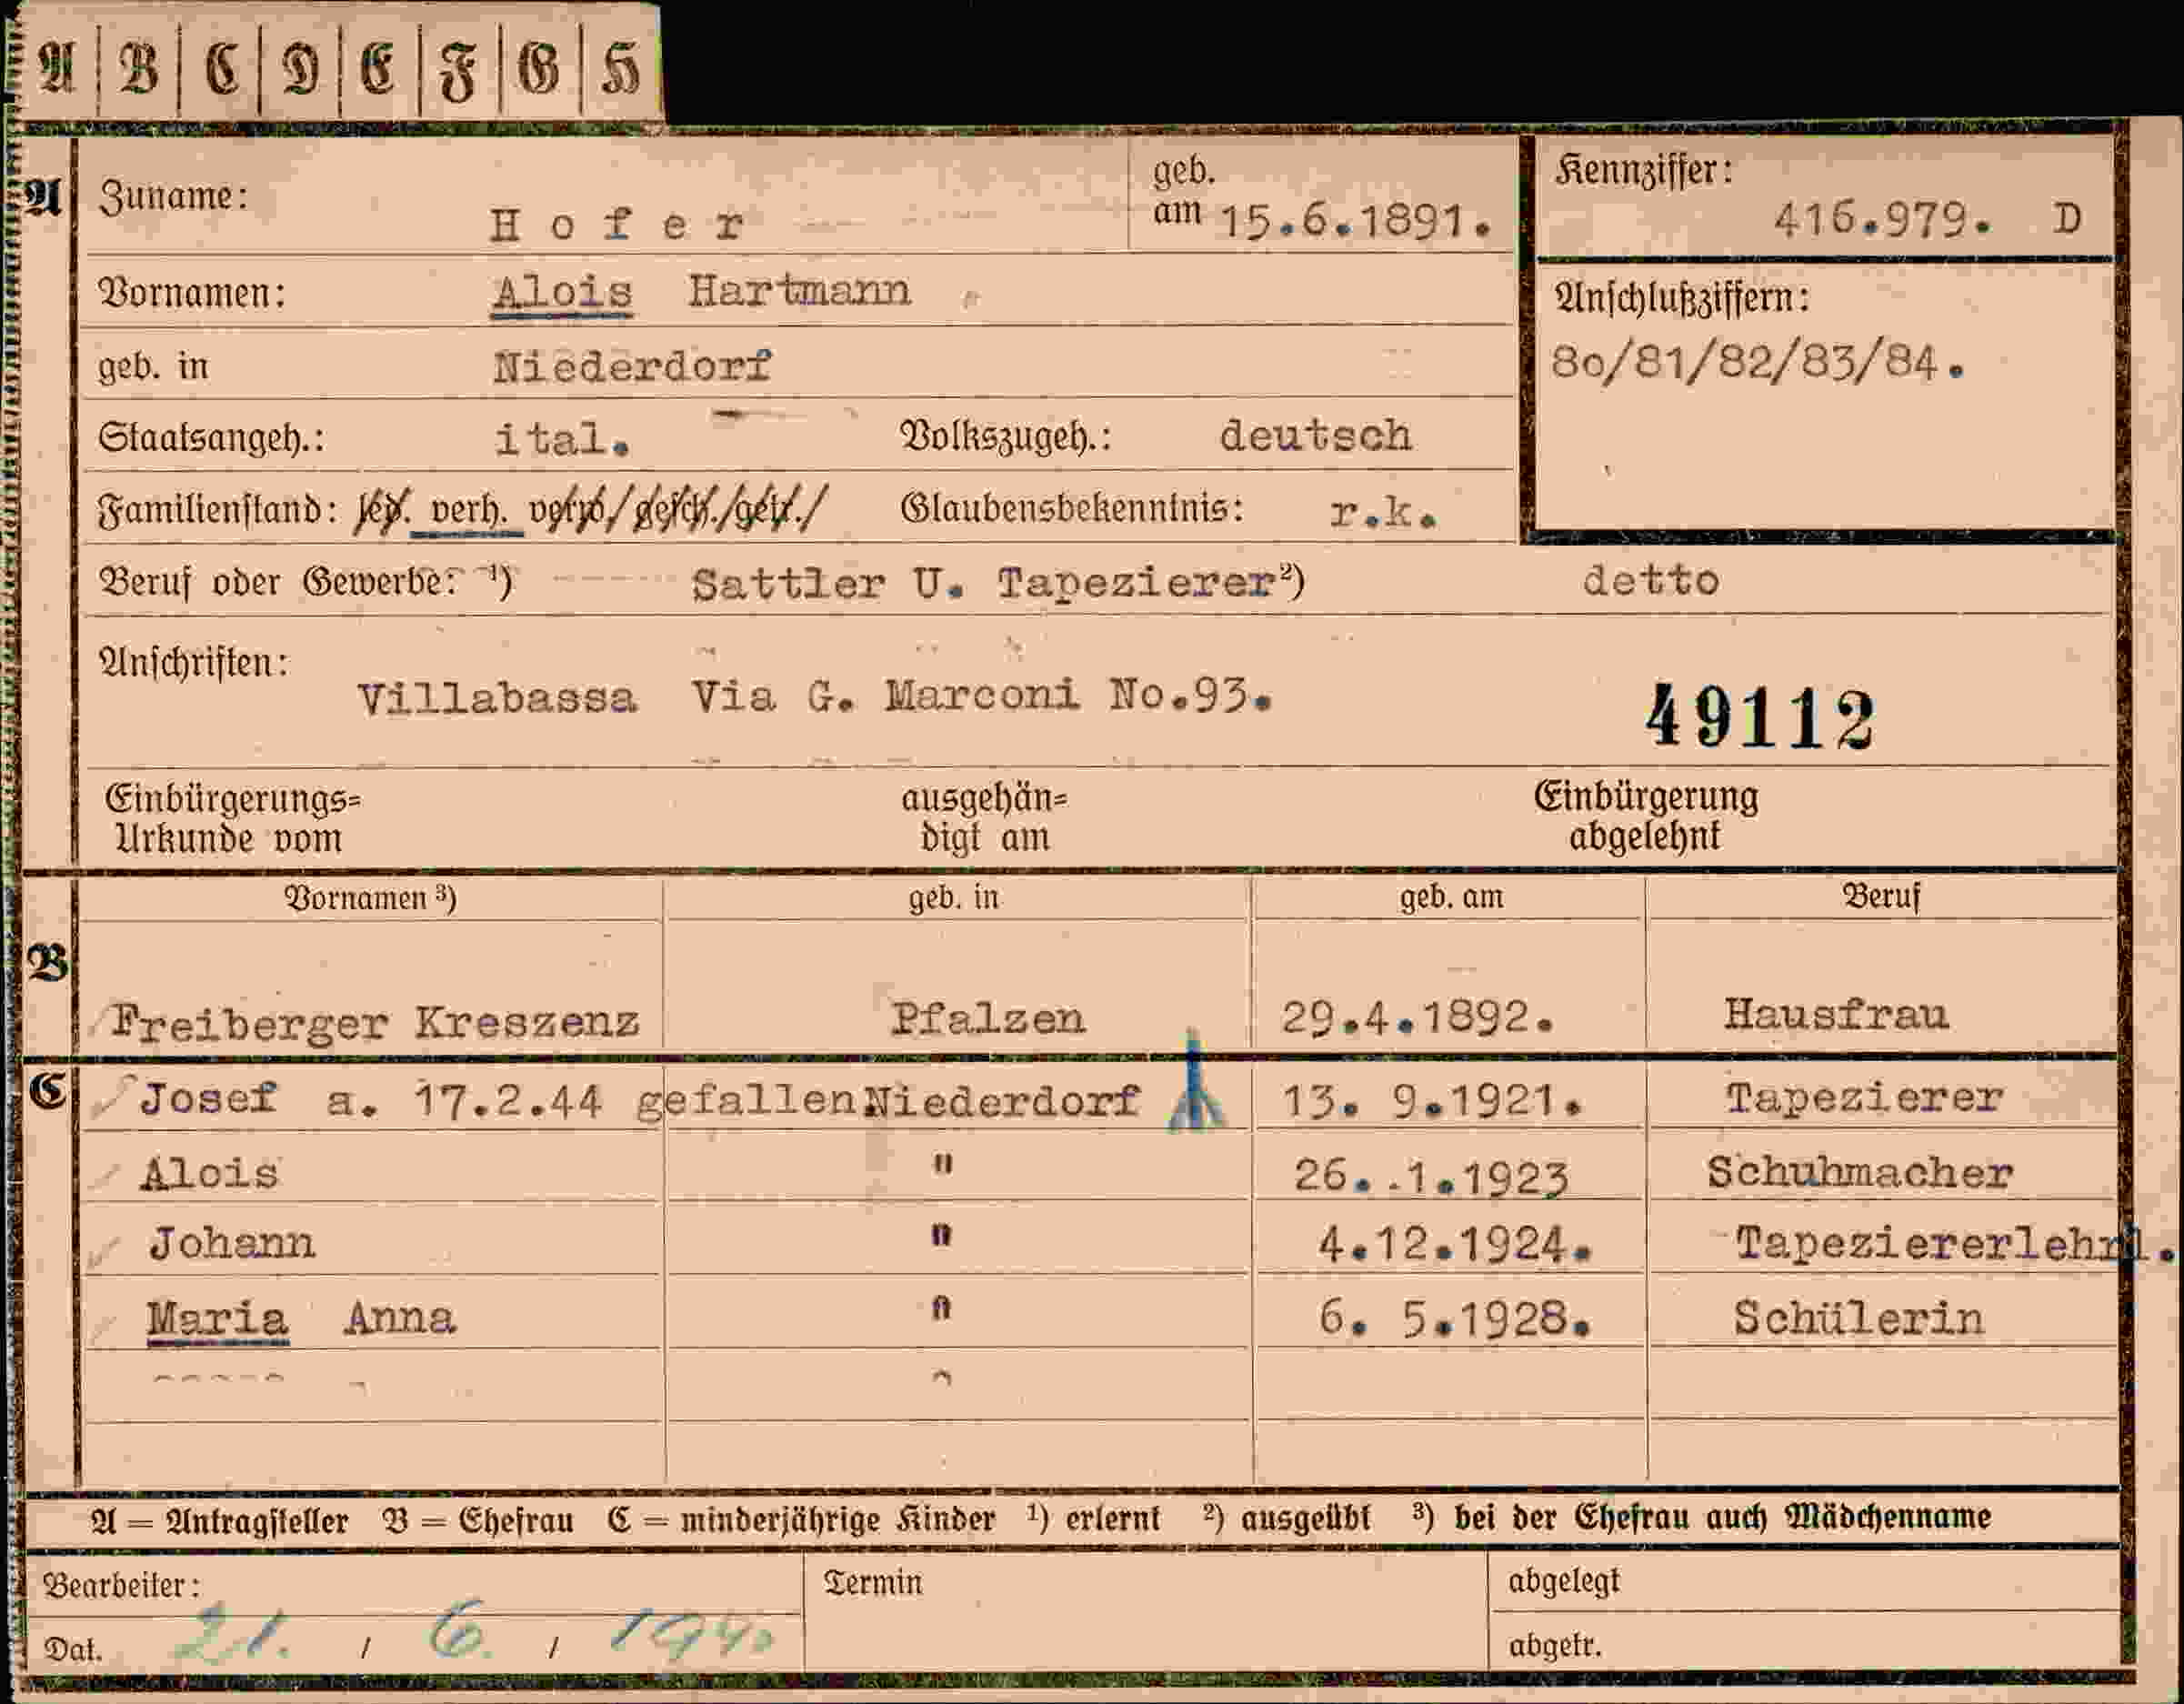 A | B | C | D | E | F | G | H
A Zuname: Hofer geb. am 15.6.1891. Kennziffer: 416.979. D
Vornamen: Alois Hartmann
Anschlußziffern:
80/81/82/83/84.
geb. in Niederdorf
Staatsangeh.: ital. Volkszugeh.: deutsch
Familienstand: led. verh. verw./gesch./getr./ Glaubensbekenntnis: r.k.
Beruf oder Gewerbe: ¹) Sattler U. Tapezierer ²) detto
Anschriften:
Villabassa Via G. Marconi No.93.
49112
Einbürgerungs=
Urkunde vom
ausgehän=
digt am
Einbürgerung
abgelehnt
Vornamen ³) geb. in geb. am Beruf
B
Freiberger Kreszenz Pfalzen 29.4.1892. Hausfrau
C Josef a. 17.2.44 gefallen Niederdorf 13. 9.1921. Tapezierer
Alois " 26. .1.1923 Schuhmacher
Johann " 4.12.1924. Tapeziererlehrl.
Maria Anna " 6. 5.1928. Schülerin
A = Antragsteller B = Ehefrau C = minderjährige Kinder ¹) erlernt ²) ausgeübt ³) bei der Ehefrau auch Mädchenname
Bearbeiter: Termin abgelegt
Dat. 21. / 6. / 1940 abgetr.